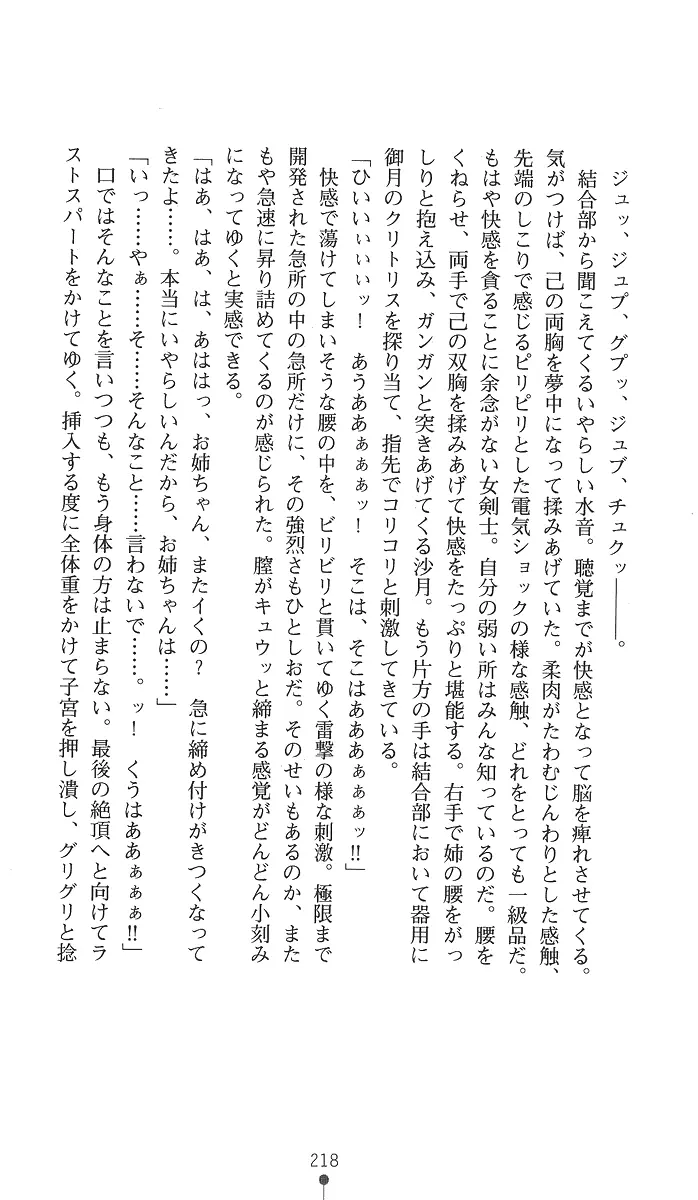 ジュッ、ジュプ、グプッ、ジュブ、チュクッ――。
結合部から聞こえてくるいやらしい水音。聴覚までが快感となって脳を痺れさせてくる。
気がつけば、己の両胸を夢中になって揉みあげていた。柔肉がたわむじんわりとした感触、
先端のしこりで感じるピリピリとした電気ショックの様な感触、どれをとっても一級品だ。
もはや快感を貪ることに余念がない女剣士。自分の弱い所はみんな知っているのだ。腰を
くねらせ、両手で己の双胸を揉みあげて快感をたっぷりと堪能する。右手で姉の腰をがっ
しりと抱え込み、ガンガンと突きあげてくる沙月。もう片方の手は結合部において器用に
御月のクリトリスを探り当て、指先でコリコリと刺激してきている。
「ひいいぃぃぃッ！　あうああぁぁぁッ！　そこは、そこはあああぁぁぁッ!!」
快感で蕩けてしまいそうな腰の中を、ビリビリと貫いてゆく雷撃の様な刺激。極限まで
開発された急所の中の急所だけに、その強烈さもひとしおだ。そのせいもあるのか、また
もや急速に昇り詰めてくるのが感じられた。膣がキュウッと締まる感覚がどんどん小刻み
になってゆくと実感できる。
「はあ、はあ、は、あははっ、お姉ちゃん、またイくの？　急に締め付けがきつくなって
きたよ……。本当にいやらしいんだから、お姉ちゃんは……」
「いっ……やぁ……そ……そんなこと……言わないで……。ッ！　くうはああぁぁぁ!!」
口ではそんなことを言いつつも、もう身体の方は止まらない。最後の絶頂へと向けてラ
ストスパートをかけてゆく。挿入する度に全体重をかけて子宮を押し潰し、グリグリと捻
218